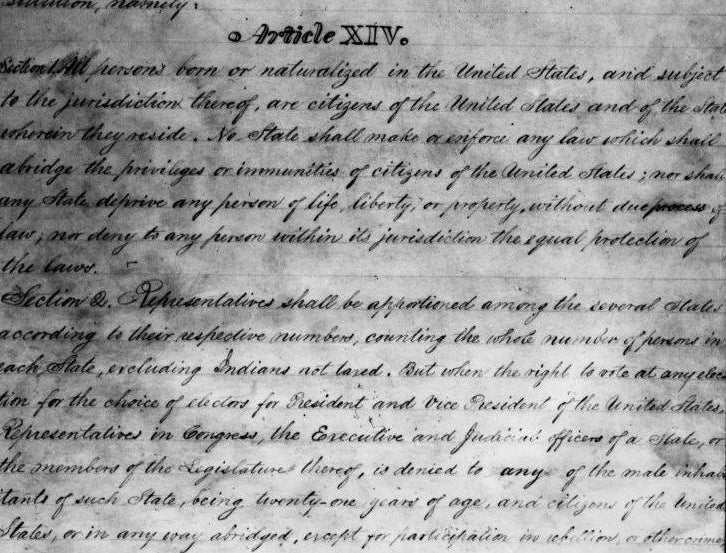 stitution, namely:
Article XIV.
Section 1. All persons born or naturalized in the United States, and subject
to the jurisdiction thereof, are citizens of the United States and of the State
wherein they reside. No State shall make or enforce any law which shall
abridge the privileges or immunities of citizens of the United States; nor shall
any State deprive any person of life, liberty, or property, without due process of
law; nor deny to any person within its jurisdiction the equal protection of
the laws.
Section 2. Representatives shall be apportioned among the several States
according to their respective numbers, counting the whole number of persons in
each State, excluding Indians not taxed. But when the right to vote at any elec
tion for the choice of electors for President and Vice President of the United States,
Representatives in Congress, the Executive and Judicial officers of a State, or
the members of the Legislature thereof, is denied to any of the male inhabi
tants of such State, being twenty-one years of age, and citizens of the United
States, or in any way abridged, except for participation in rebellion, or other crime,